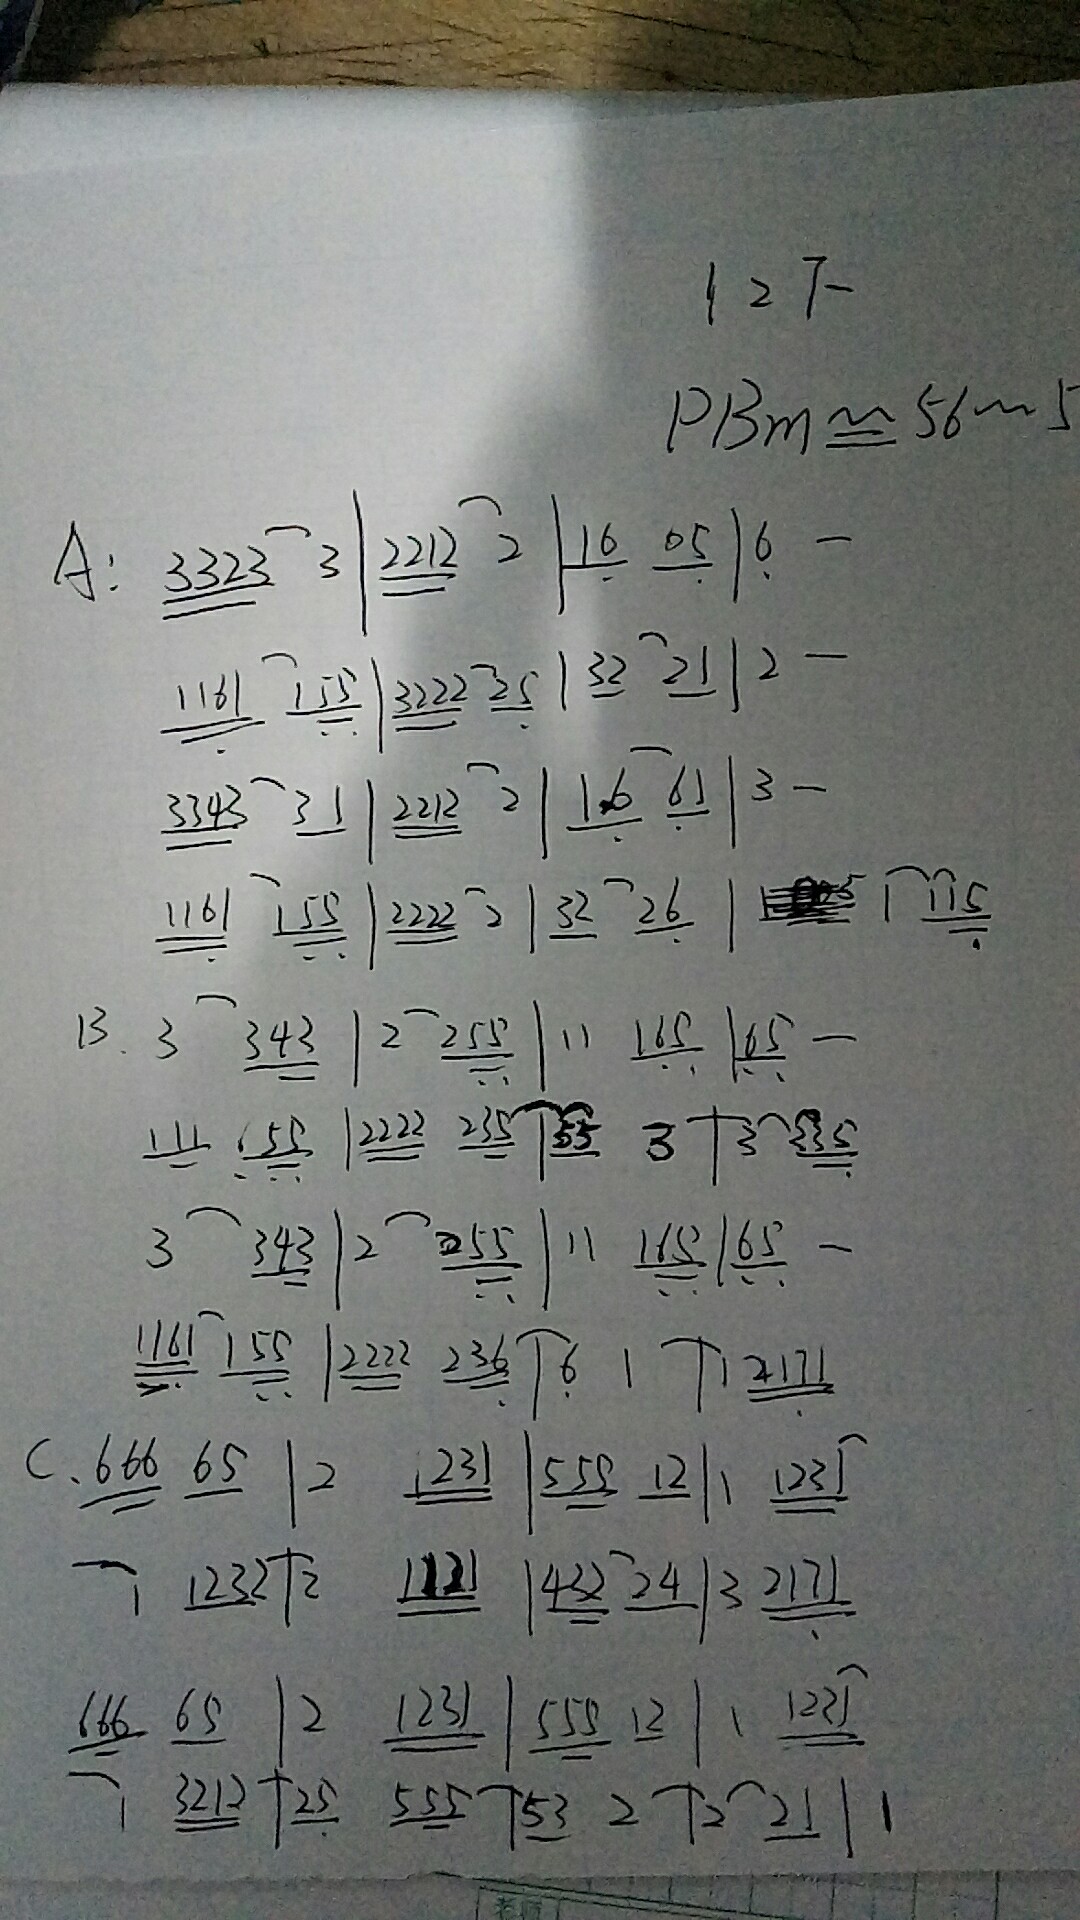 1 2 7-
PBm ≈ 56~5
A: 3323 3 | 2212 2 | 16 05 | 6 -
1161 155 | 3222 25 | 32 21 | 2 -
3343 31 | 2212 2 | 1.6 61 | 3 -
1161 155 | 2222 2 | 32 26 | 1 115
B. 3 343 | 2 255 | 11 165 | 65 -
111 155 | 2222 235 | 55 3 | 3 335
3 343 | 2 255 | 11 165 | 65 -
1161 155 | 2222 236 | 6 1 | 1 2171
C. 666 65 | 2 1231 | 555 12 | 1 1231
1 1232 | 2 1121 | 432 24 | 3 2171
666 65 | 2 1231 | 555 12 | 1 1231
1 3212 | 25 555 | 53 2 | 2 21 | 1